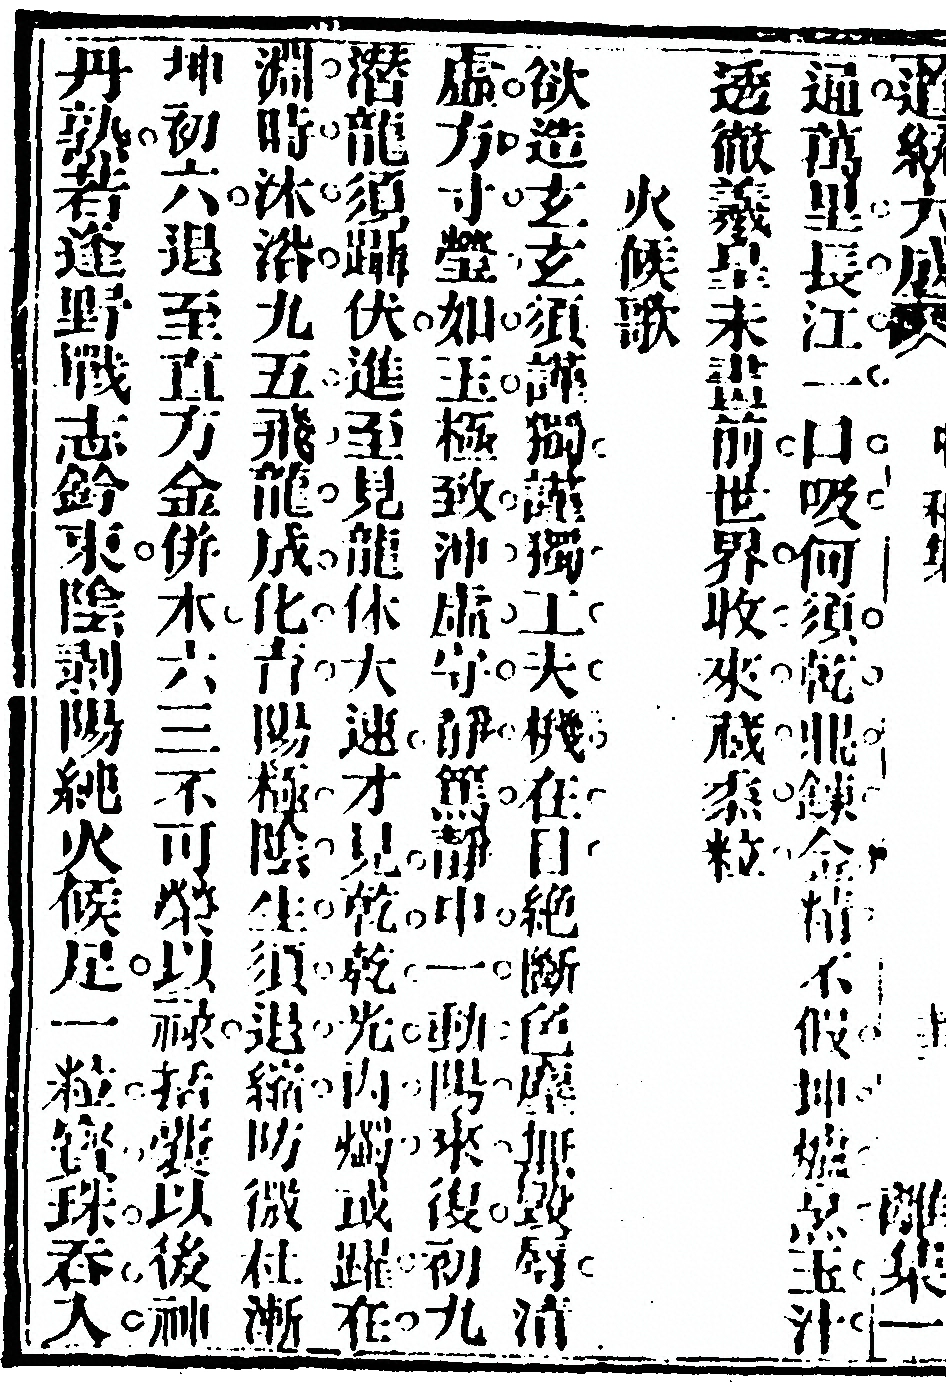 道統大成
離集一
通萬里長江一口吸何須乾鼎鍊金精不假坤爐烹玉汁
透徹羲皇未畫前世界收來藏黍粒
火候歌
欲造玄玄須謹獨謹獨工夫機在目絕斷色塵無毀辱清
虛方寸瑩如玉極致沖虛守靜篤靜中一動陽來復初九
潛龍須躡伏進至見龍休大速才見乾乾光內燭或躍在
淵時沐浴九五飛龍成化育陽極陰生須退縮防微杜漸
坤初六退至直方金併木六三不可榮以祿括囊以後神
丹熟若逢野戰志鈐束陰剝陽純火候足一粒寶珠吞入